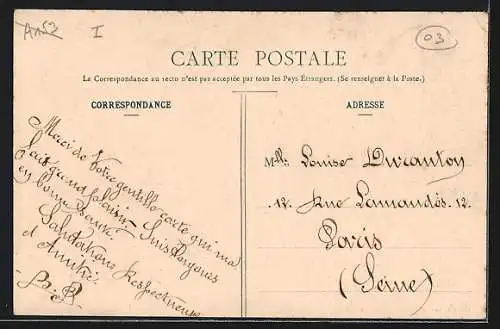 A153
I
03
CARTE POSTALE
La Correspondance au recto n'est pas acceptée par tous les Pays Étrangers. (Se renseigner à la Poste.)
CORRESPONDANCE
Merci de Votre gentille carte qui m'a
fais grand plaisir. Suis toujours
en bonne santé.
Salutations Respectueuses
et Amitié.
ADRESSE
Mlle Louise Duranton
12. Rue Lamandés. 12
Paris
(Seine)